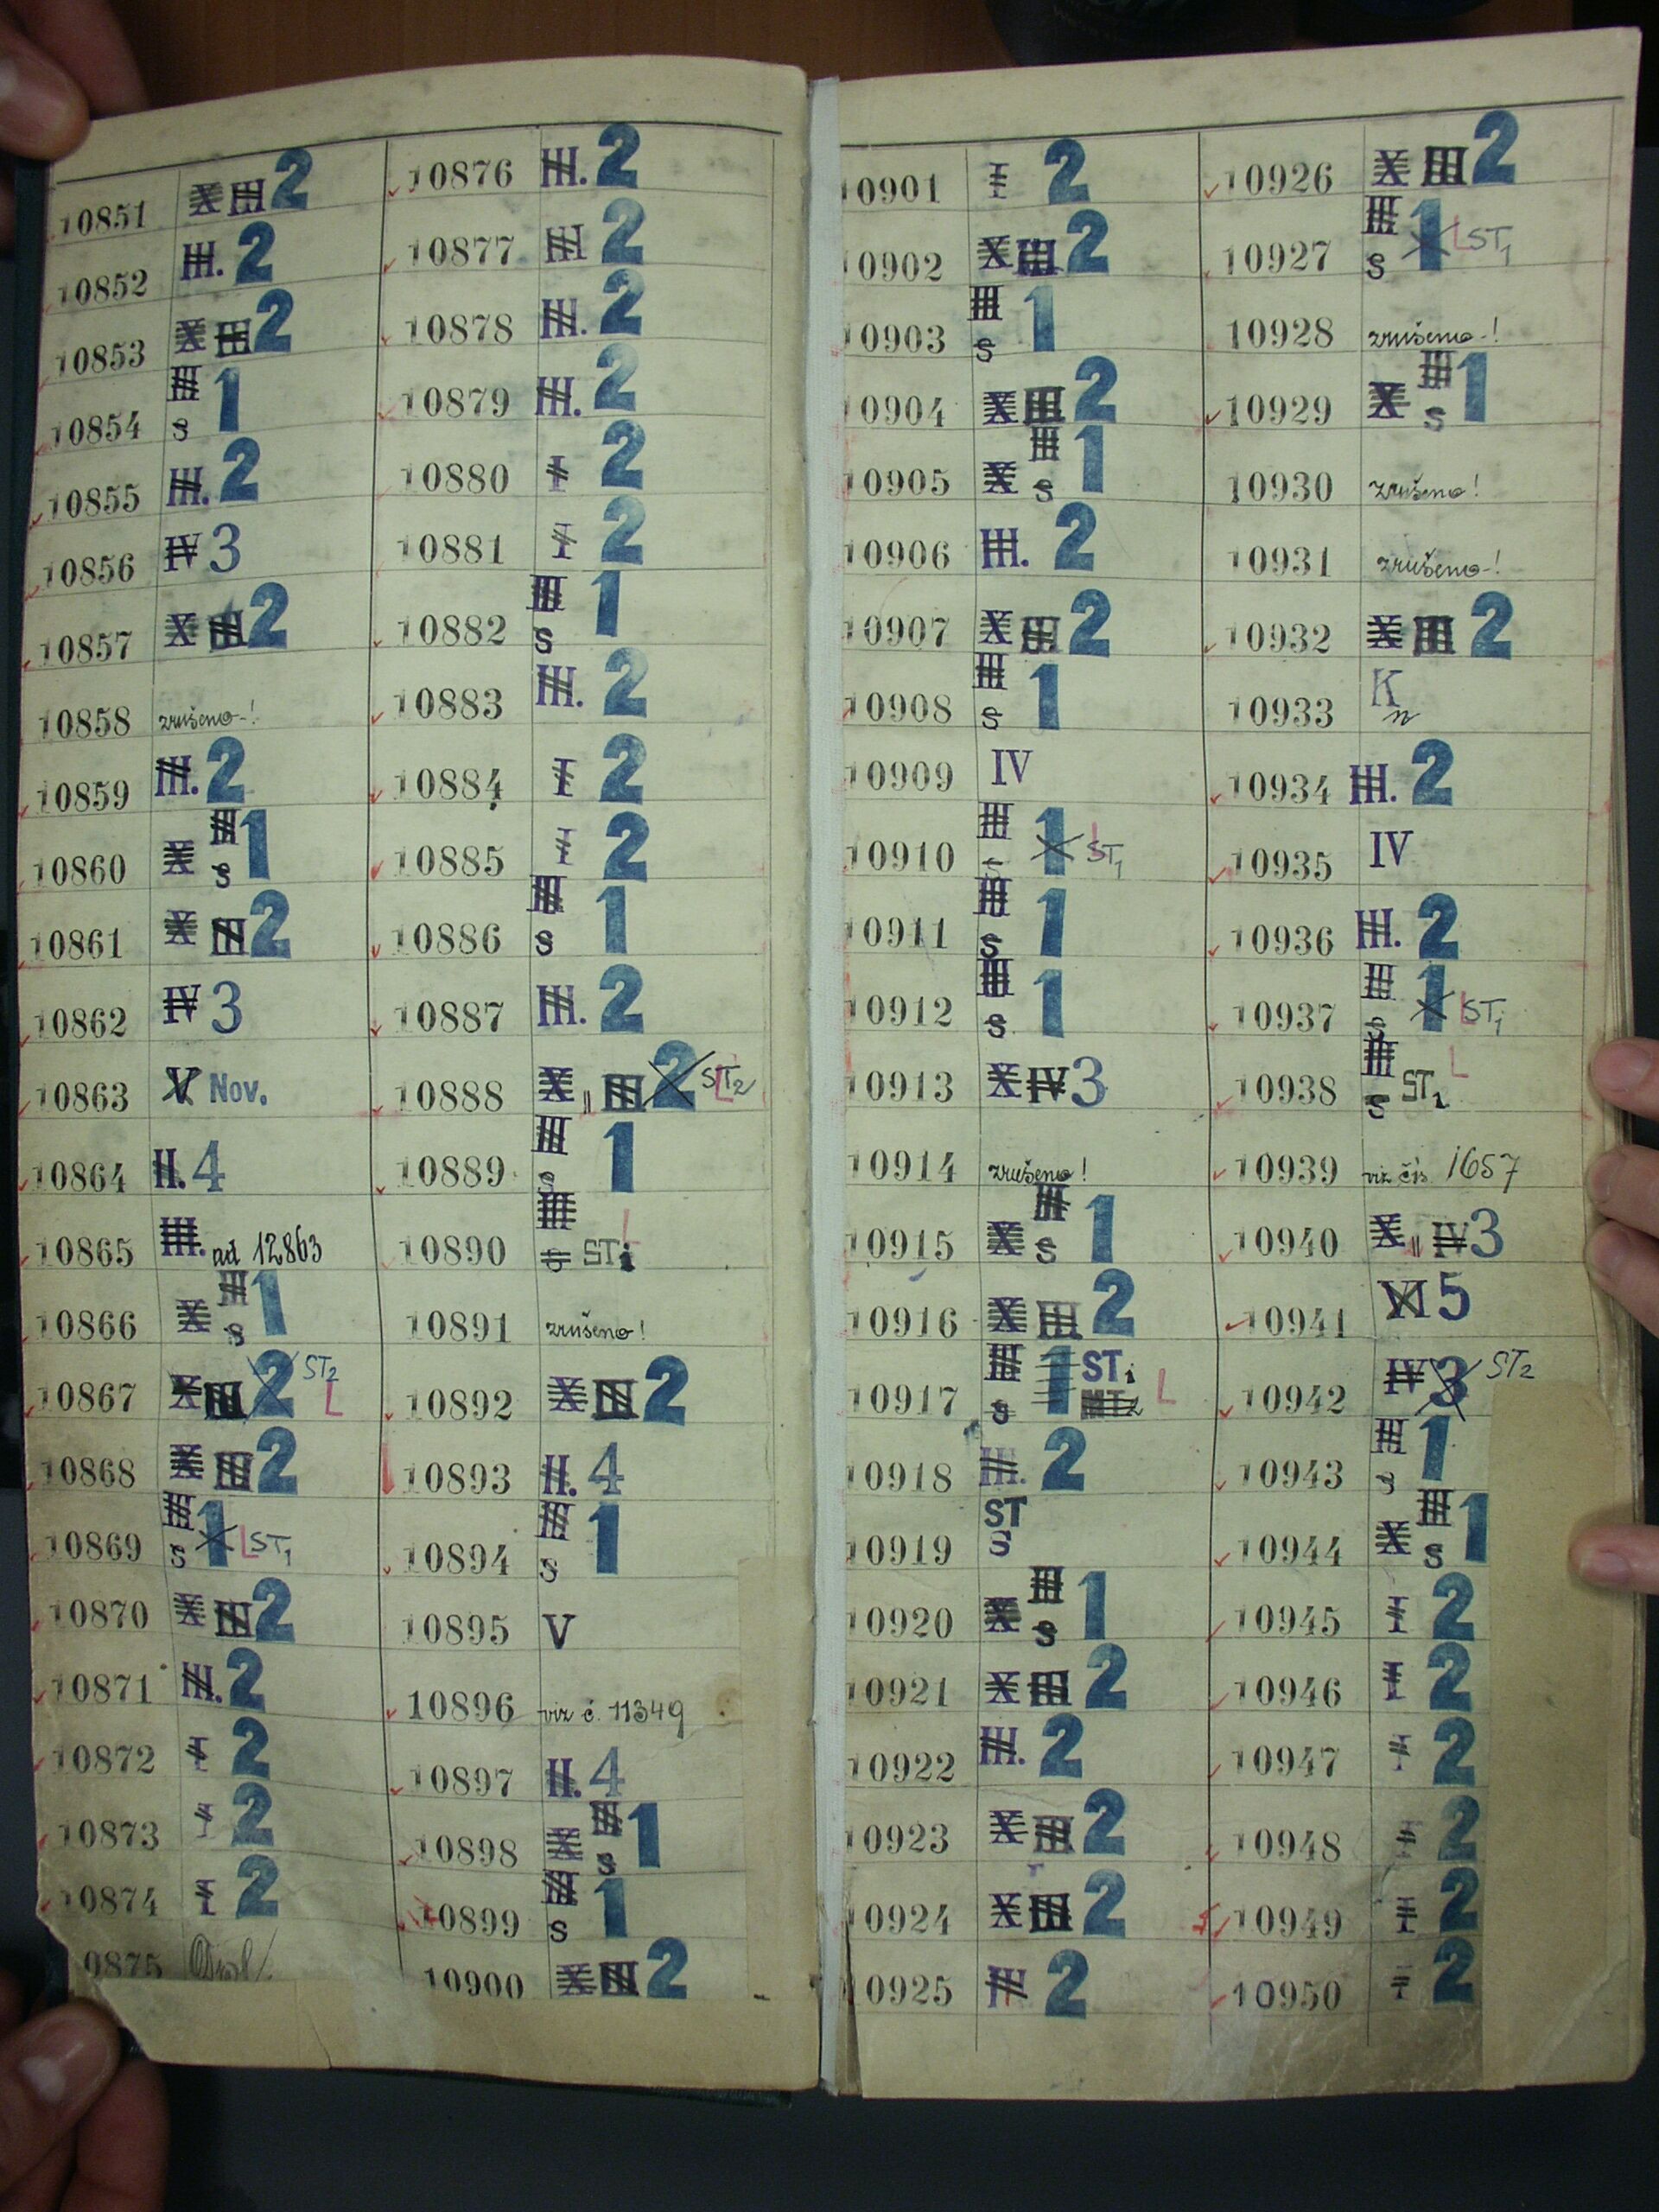 10851 X III 2
10852 III. 2
10853 X III 2
10854 III S 1
10855 III. 2
10856 IV 3
10857 X III 2
10858 zrušeno-!
10859 III. 2
10860 X III S 1
10861 X III 2
10862 IV 3
10863 V Nov.
10864 II. 4
10865 III. ad 12863
10866 X III S 1
10867 X III 2 ST2 L
10868 X III 2
10869 III S 1 L ST1
10870 X III 2
10871 III. 2
10872 I 2
10873 I 2
10874 I 2
0875
10876 III. 2
10877 III 2
10878 III. 2
10879 III. 2
10880 I 2
10881 I 2
10882 III S 1
10883 III. 2
10884 I 2
10885 I 2
10886 III S 1
10887 III. 2
10888 X II III 2 ST2 L
10889 III S 1
10890 III S ST1 L
10891 zrušeno!
10892 X III 2
10893 II. 4
10894 III S 1
10895 V
10896 viz č. 11349
10897 II. 4
10898 X III S 1
10899 III S 1
10900 X III 2
10901 I 2
10902 X III 2
10903 III S 1
10904 X III 2
10905 X III S 1
10906 III. 2
10907 X III 2
10908 III S 1
10909 IV
10910 III S 1 L ST1
10911 III S 1
10912 III S 1
10913 X IV 3
10914 zrušeno!
10915 X III S 1
10916 X III 2
10917 III S 1 ST1 L
10918 III. 2
10919 ST S
10920 X III S 1
10921 X III 2
10922 III. 2
10923 X III 2
10924 X III 2
10925 III 2
10926 X III 2
10927 III S 1 L ST1
10928 zrušeno-!
10929 X III S 1
10930 zrušeno!
10931 zrušeno-!
10932 X III 2
10933 K n
10934 III. 2
10935 IV
10936 III. 2
10937 III S 1 L ST1
10938 III S ST1 L
10939 viz čís. 1657
10940 X II IV 3
10941 VI 5
10942 IV 3 ST2
10943 III S 1
10944 X III S 1
10945 I 2
10946 I 2
10947 I 2
10948 I 2
10949 I 2
10950 I 2